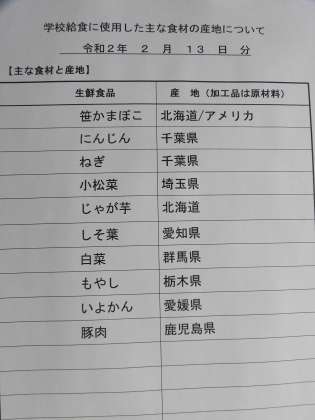 学校給食に使用した主な食材の産地について
令和2年 2 月 13 日 分
【主な食材と産地】
生鮮食品 産 地（加工品は原材料）
笹かまぼこ 北海道/アメリカ
にんじん 千葉県
ねぎ 千葉県
小松菜 埼玉県
じゃが芋 北海道
しそ葉 愛知県
白菜 群馬県
もやし 栃木県
いよかん 愛媛県
豚肉 鹿児島県